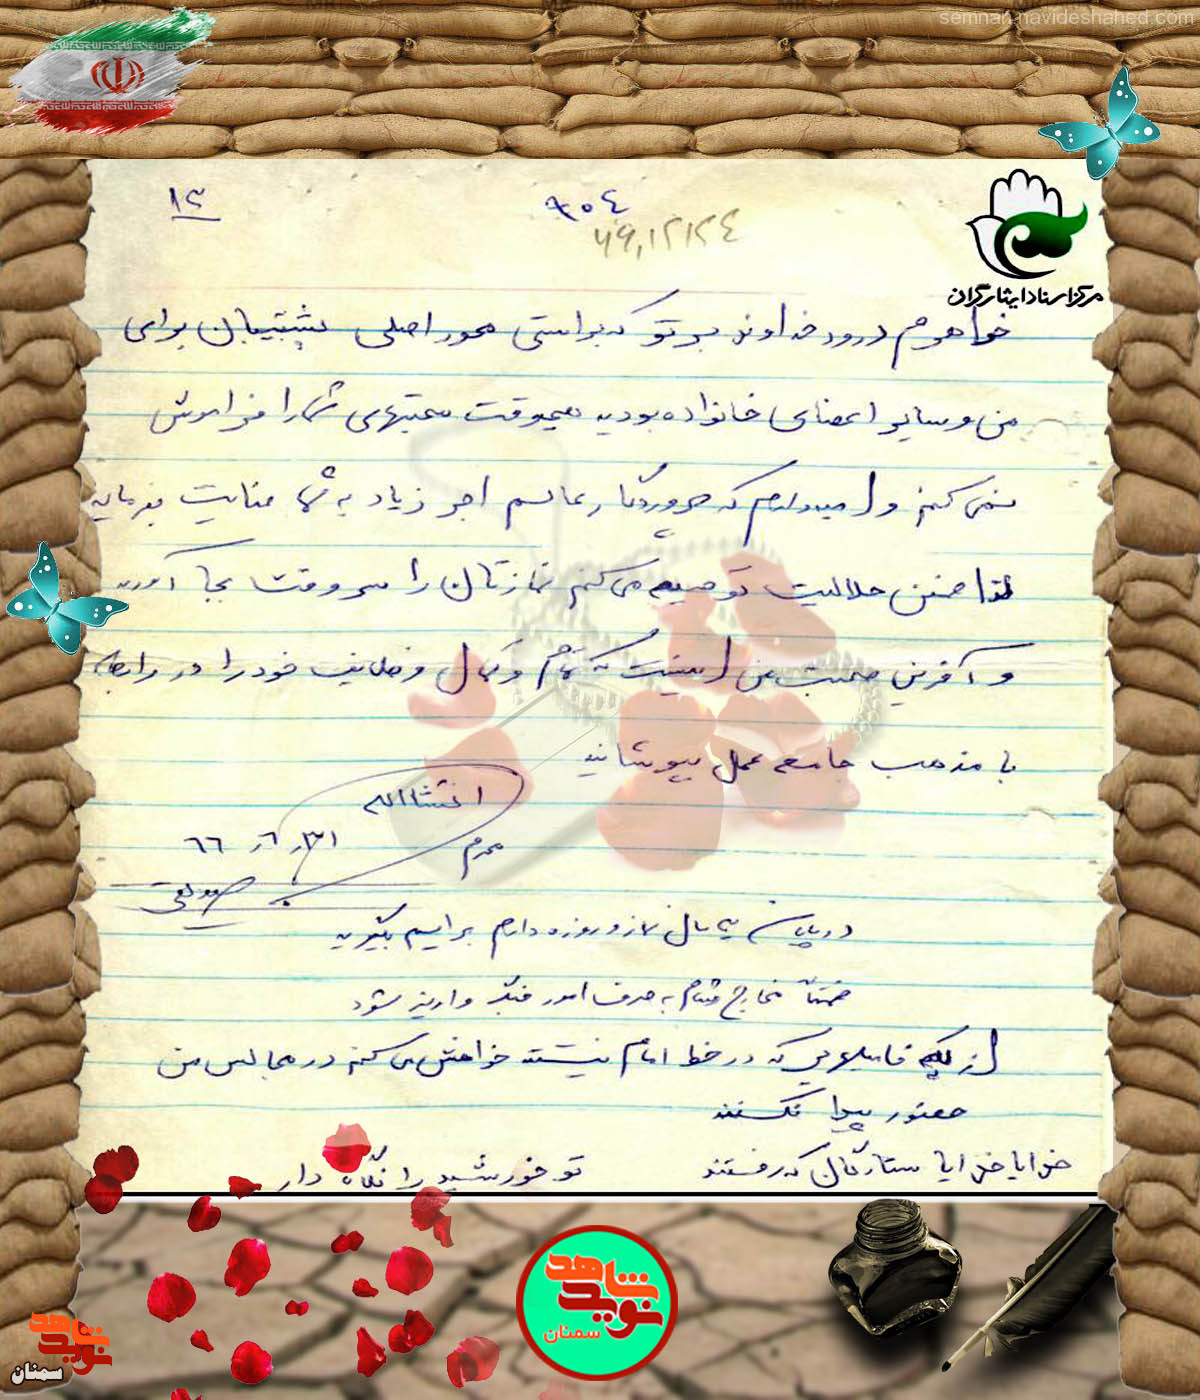 semnan.navideshahed.com
۱۳
۹۰٤
۶۹,۱۲۱۲٤
مرکز اسناد ایثارگران
خواهرم درود خداوند بر تو که براستی محور اصلی پشتیبان برای
من و سایر اعضای خانواده بودید هیچوقت محبتهای شما را فراموش
نمی کنم و امیدوارم که پروردگار عالم اجر زیاد به شما عنایت بفرماید
لذا ضمن حلالیت توصیه می کنم نمازتان را سر وقت بجا آورید
و آخرین صحبت من اینست که تمام و کمال وظایف خود را در رابطه
با مذهب جامعه عمل بپوشانید
انشاالله
محرم
۶۶
در پایان یکسال نماز و روزه دارم برایم بگیرید
ضمناً مخارج ختم به صرف امور جنگ واریز شود
از کلیه فامیلهایی که در خط امام نیستند خواهش می کنم در مجالس من
حضور پیدا نکنند
خدایا خدایا ستارگان که رفتند تو خورشید را نگاه دار
نوید شاهد
سمنان
نوید شاهد
سمنان